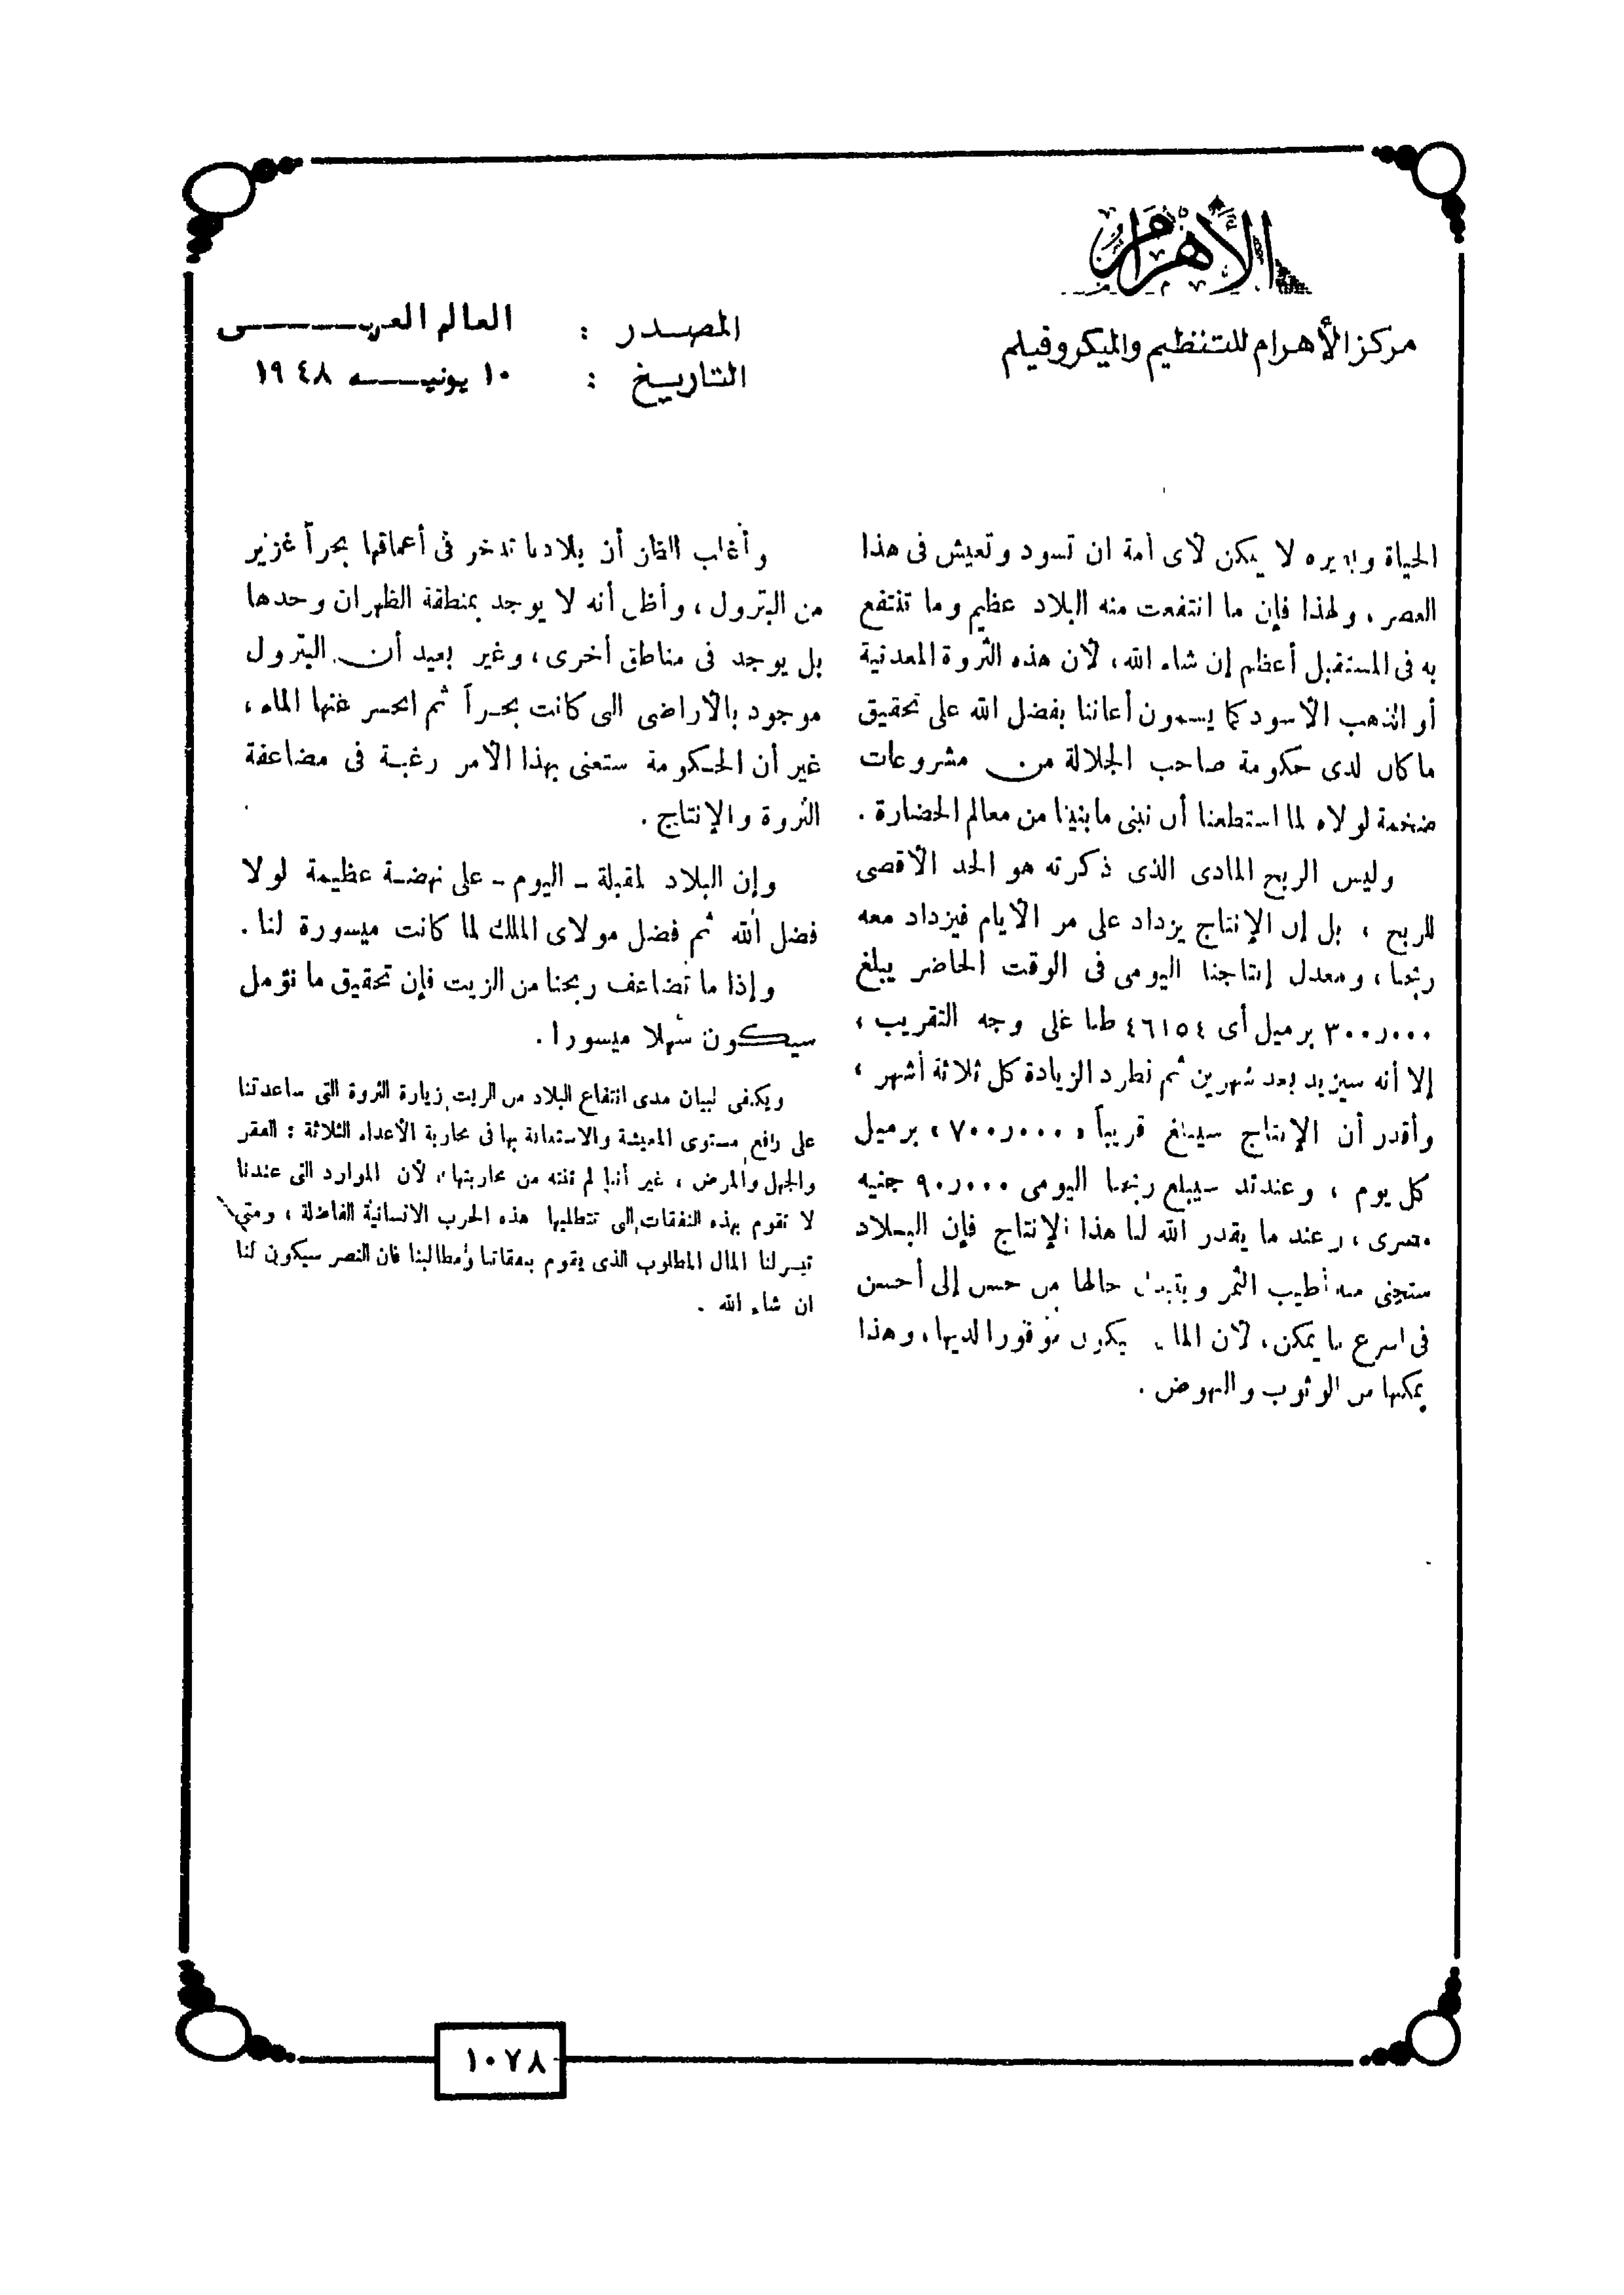 الأهرام
مركز الأهرام للتنظيم والميكروفيلم
المصدر : العالم العربى
التاريخ : ١٠ يونيه ١٩٤٨
الحياة لا يمكن لأى أمة ان تسود وتعيش فى هذا
العصر ، ولهذا فإن ما انتفعت منه البلاد عظيم وما تنتفع
به فى المستقبل أعظم إن شاء الله ، لأن هذه الثروة المعدنية
أو الذهب الأسود كما يسمون أعاننا بفضل الله على تحقيق
ما كان لدى حكومة صاحب الجلالة من مشروعات
ضخمة لولاه لما استطعنا أن نبنى ما بنينا من معالم الحضارة .
وليس الربح المادى الذى ذكرته هو الحد الأقصى
للربح ، بل إن الإنتاج يزداد على مر الأيام فيزداد معه
ربحنا ، ومعدل إنتاجنا اليومى فى الوقت الحاضر يبلغ
٣٠٠ر٠٠٠ برميل أى ٤٦١٥٤ طنا على وجه التقريب ،
إلا أنه سيزيد بعد شهرين ثم تطرد الزيادة كل ثلاثة أشهر ،
وأقدر أن الإنتاج سيبلغ قريباً « ٧٠٠ر٠٠٠ » برميل
كل يوم ، وعندئذ سيبلغ ربحنا اليومى ٩٠ر٠٠٠ جنيه
مصرى ، وعند ما يقدر الله لنا هذا الإنتاج فإن البلاد
ستجنى منه أطيب الثمر ويتبدل حالها من حسن إلى أحسن
فى اسرع ما يمكن ، لأن المال يكون موفورا لديها ، وهذا
يمكنها من الوثوب والنهوض .
وأغلب الظن أن بلادنا تدخر فى أعماقها بحراً غزير
من البترول ، وأظن أنه لا يوجد بمنطقة الظهران وحدها
بل يوجد فى مناطق أخرى ، وغير بعيد أن البترول
موجود بالأراضى التى كانت بحراً ثم انحسر عنها الماء ،
غير أن الحكومة ستعنى بهذا الأمر رغبة فى مضاعفة
الثروة والإنتاج .
وإن البلاد لمقبلة ـ اليوم ـ على نهضة عظيمة لولا
فضل الله ثم فضل مولاى الملك لما كانت ميسورة لنا .
وإذا ما تضاعف ربحنا من الزيت فإن تحقيق ما نؤمل
سيكون سهلا ميسورا .
ويكفى لبيان مدى انتفاع البلاد من الزيت زيارة الثروة التى ساعدتنا
على رافع مستوى المعيشة والاستعانة بها فى محاربة الأعداء الثلاثة : الفقر
والجهل والمرض ، غير أننا لم ننته من محاربتها ، لأن الموارد التى عندنا
لا تقوم بهذه النفقات التى تتطلبها هذه الحرب الانسانية الفاضلة ، ومتى
تيسر لنا المال المطلوب الذى يقوم بنفقاتنا ومطالبنا فان النصر سيكون لنا
ان شاء الله .
١٠٧٨